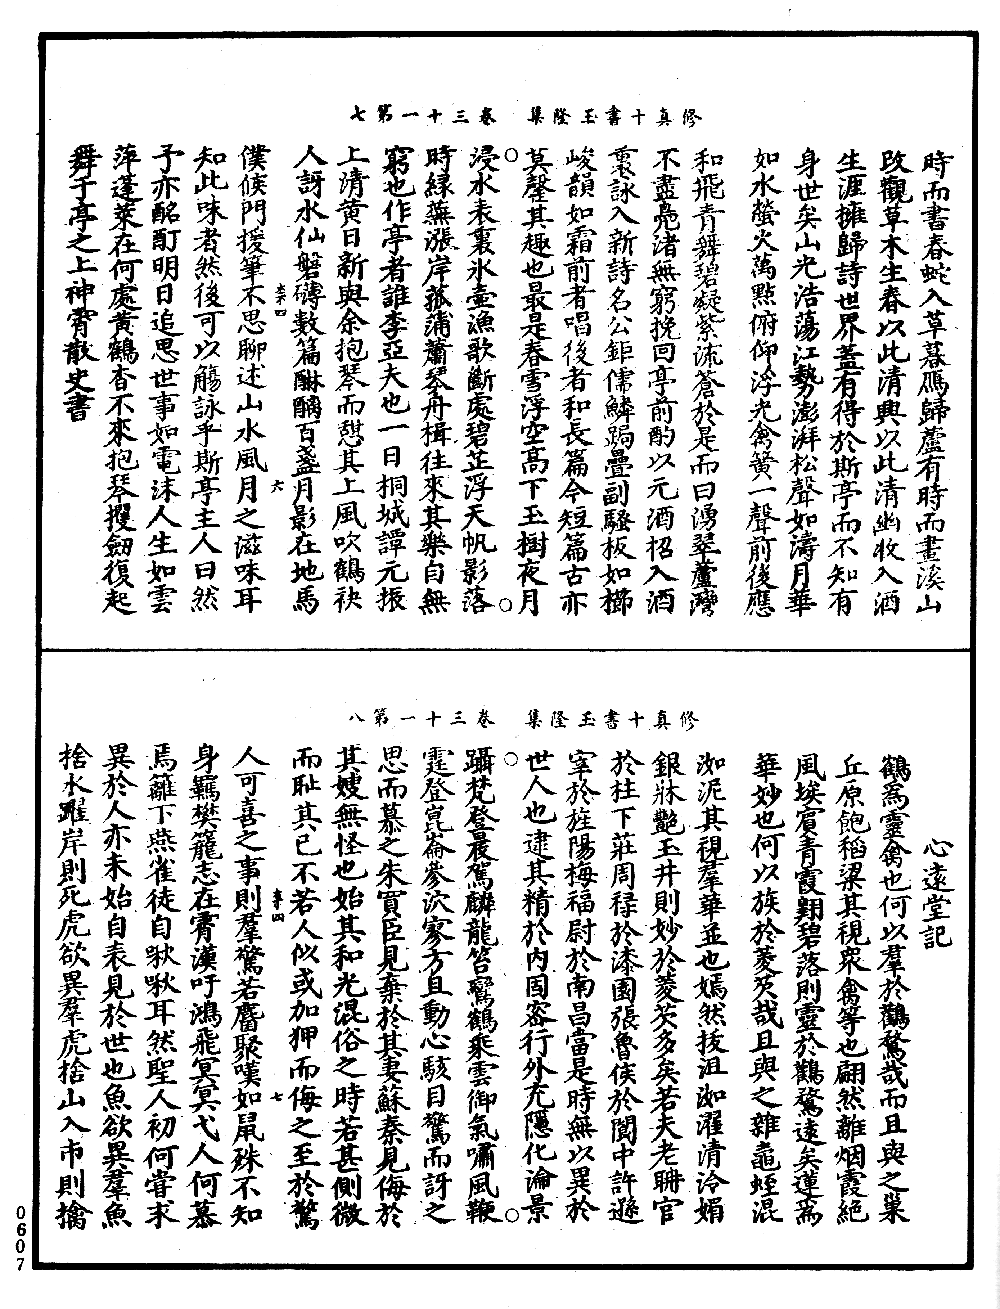 修真十書玉隆集　卷三十一第七
時而書春蛇入草暮鴈歸蘆有時而畫溪山
改觀草木生春以此清興以此清幽收入酒
生涯擁歸詩世界蓋有得於斯亭而不知有
身世矣山光浩蕩江勢澎湃松聲如濤月華
如水螢火萬點俯仰浮光禽簧一聲前後應
和飛青舞碧凝紫流蒼於是而曰湧翠蘆灣
不盡鳧渚無窮挽回亭前酌以元酒招入酒
裏詠入新詩名公鉅儒鱗跼疊副騷板如櫛
峻韻如霜前者唱後者和長篇今短篇古亦
莫罄其趣也最是春雪浮空高下玉樹夜月
浸水表裏冰壺漁歌斷處碧芷浮天帆影落
時綠蕪漲岸菰蒲蕭琴舟楫往來其樂自無
窮也作亭者誰李亞夫也一日桐城譚元振
上清黃日新與余抱琴而憇其上風吹鶴袂
人訝水仙磐礴數篇酬酺百盞月影在地馬
僕候門援筆不思聊述山水風月之滋味耳
知此味者然後可以觴詠乎斯亭主人曰然
予亦酩酊明日追思世事如電沫人生如雲
萍蓬萊在何處黃鶴杳不來抱琴攫劒復起
舞于亭之上神霄散史書
修真十書玉隆集　卷三十一第八
心遠堂記
鶴為靈禽也何以羣於鸛鶩哉而且與之巢
丘原飽稻粱其視眾禽等也翩然離烟霞絕
風埃賔青霞翺碧落則靈於鸛鶩遠矣蓮蔿
華妙也何以族於菱芡哉且與之雜黽蛭混
洳泥其視羣華並也嫣然拔沮洳濯清泠媚
銀牀艷玉井則妙於菱芡多矣若夫老聃官
於柱下莊周祿於漆園張魯侯於閬中許遜
宰於旌陽梅福尉於南昌當是時無以異於
世人也逮其精於內固密行外充隱化淪景
躡梵登晨駕麟龍笞鸞鶴乘雲御氣嘯風鞭
霆登崑崙參泬寥方且動心駭目驚而訝之
思而慕之朱買臣見棄於其妻蘇秦見侮於
其嫂無怪也始其和光混俗之時若甚側微
而耻其已不若人似或加狎而侮之至於驚
人可喜之事則羣驚若麕聚嘆如鼠殊不知
身羈樊籠志在霄漢吁鴻飛冥冥弋人何慕
焉籬下燕雀徒自啾啾耳然聖人初何甞求
異於人亦未始自表見於世也魚欲異羣魚
捨水躍岸則死虎欲異羣虎捨山入市則擒
0607